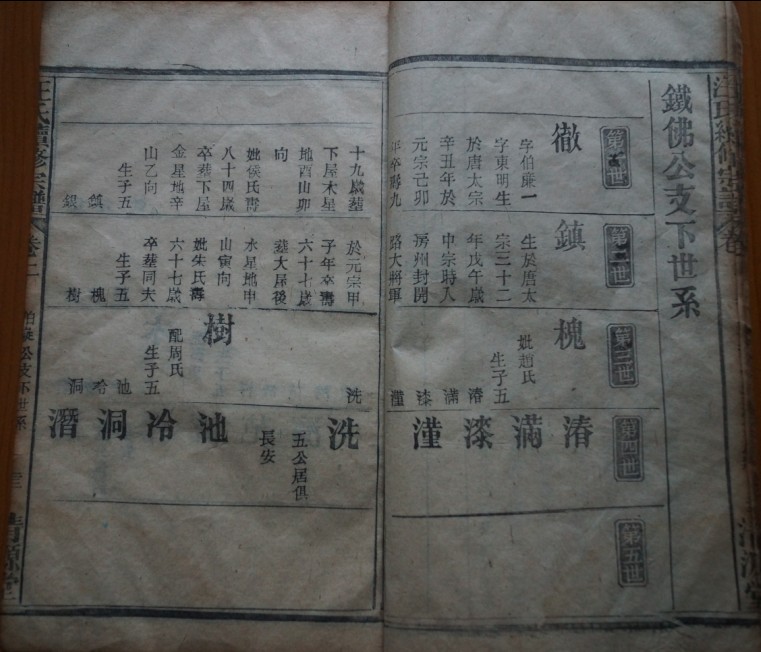 鐵佛公支下世系
第一世
徹
字伯廉一
字東明生
於唐太宗
辛丑年於
元宗己卯
年卒壽九
十九歲葬
下屋木星
地酉山卯
向
妣侯氏壽
八十四歲
卒葬下屋
金星地辛
山乙向
生子五
鎮
銀
第二世
鎮
生於唐太
宗三十二
年戊午歲
中宗時人
房州封開
路大將軍
於元宗甲
子年卒壽
六十七歲
葬大屋後
水星地申
山寅向
妣朱氏壽
六十七歲
卒葬同夫
生子五
槐
樹
第三世
槐
妣趙氏
生子五
漘
滿
漆
漌
洗
樹
配周氏
生子五
池
冷
洞
第四世
漘
滿
漆
漌
洗
五公居俱
長安
池
冷
洞
潛
第五世
汪氏續修宗譜
卷二
柏葉公支下世系
清源堂